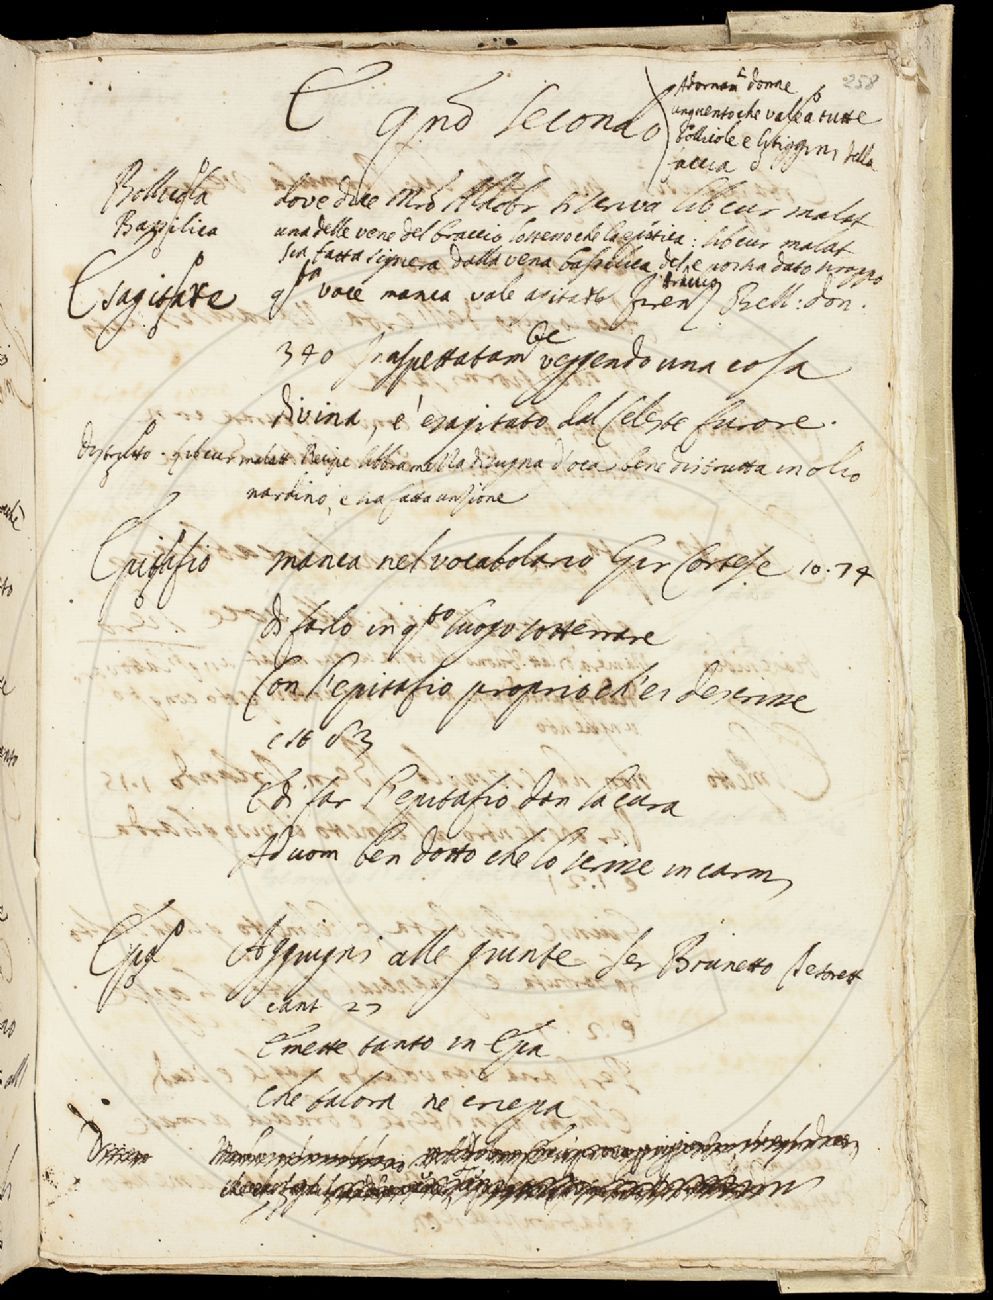 258
E qnd secondo
Adornam. donne
unguento che vale a tutte
Bollicole e litiggini della
faccia
Bollicola
Bassilica
dove dice Mro Aldobr si scriva lib cur malat
una delle vene del braccio sotteno che la epatica: lib cur malat
sia fatta signera dalla vena bassilica del braccio
Esagitare
qsta voce manca vale agitato firenz. Bell. don.
340 Inaspettatamte veggendo una cosa
divina, e' esagitato dal Celeste furore.
Distrutto. lib cur malatt Recipe libbra mezza di sugna d'oca bene distrutta in olio
nardino, e sia fatta unzione
Epitaffio
manca nel vocabolario Gir Cortese 10. 74
di farlo in qsto luogo sotterrare
Con l'epitafio proprio ch'ei descrisse
e st 83
E di far l'epitafio don la cura
Ad uom ben dotto che lo scrisse in carmi
Epa
Aggiugni alle giunte Ser Brunetto Tesorett
cant 27
E mette tanto in Epa
Che talora ne criepa